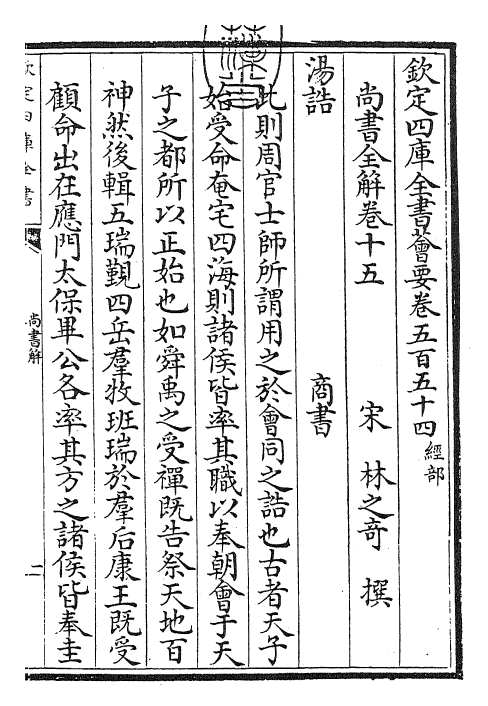 欽定四庫全書薈要卷五百五十四 經部
尚書全解卷十五 宋 林之奇 撰
湯誥 商書
此則周官士師所謂用之於會同之誥也古者天子
始受命奄宅四海則諸侯皆率其職以奉朝會于天
子之都所以正始也如舜禹之受禪既告祭天地百
神然後輯五瑞覲四岳羣牧班瑞於羣后康王既受
顧命出在應門太保畢公各率其方之諸侯皆奉圭
欽定四庫全書
尚書解
二